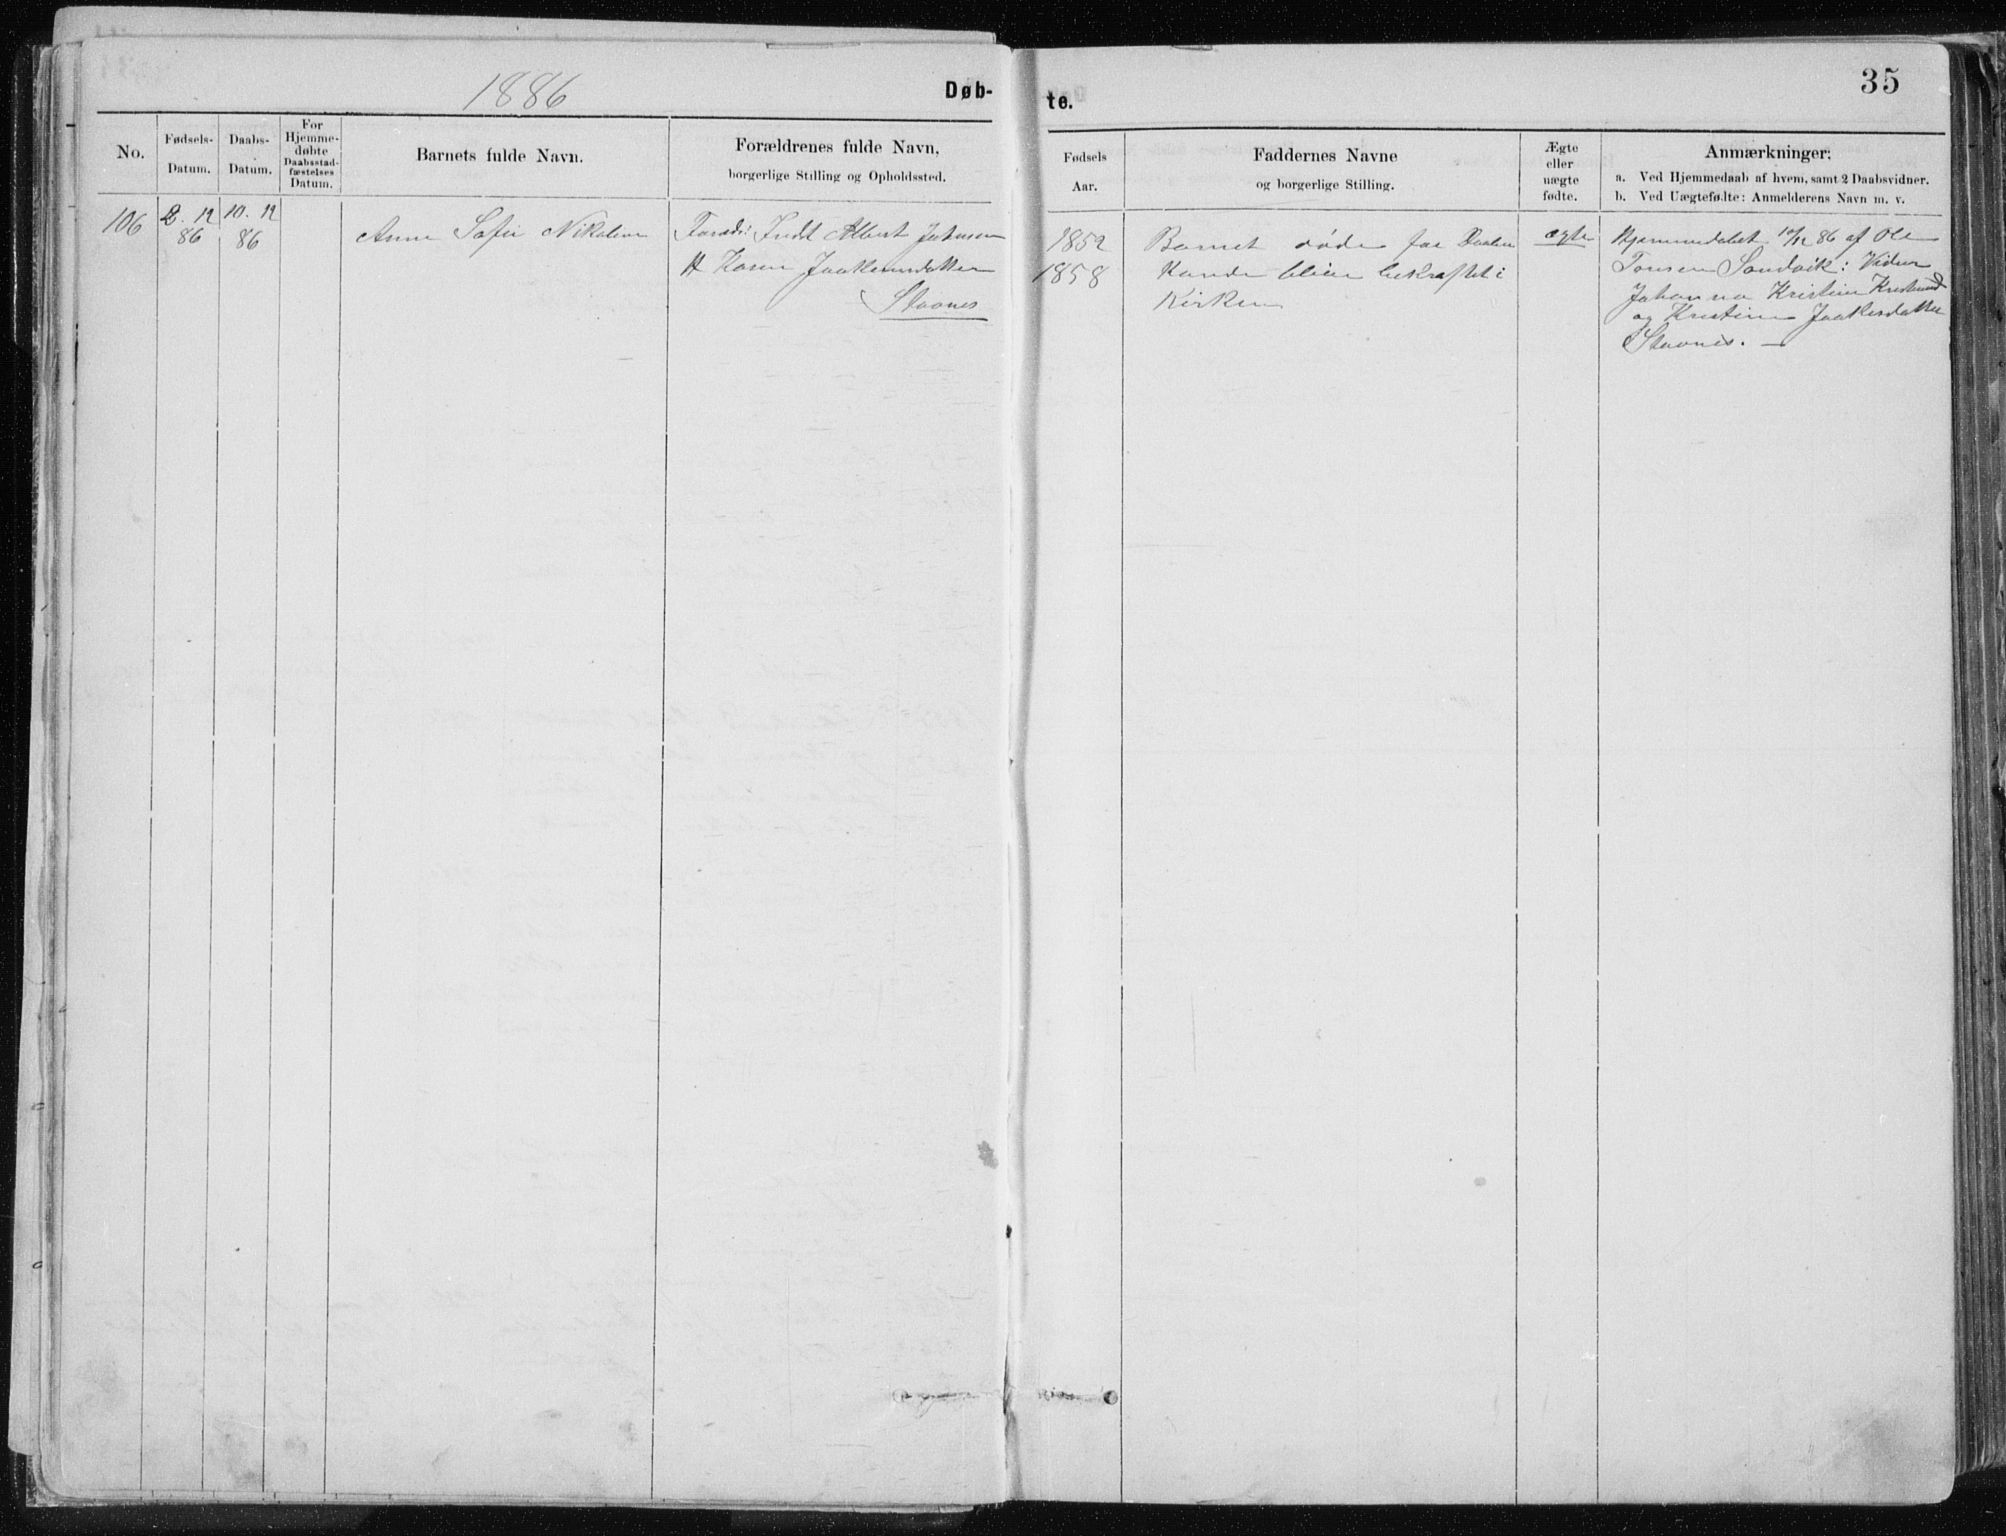 1886
Døb-
te.
35
No.
Fødsels-
Datum.
Daabs-
Datum.
For
Hjemme-
døbte
Daabsstad-
fæstelses
Datum.
Barnets fulde Navn.
Forældrenes fulde Navn,
borgerlige Stilling og Opholdssted.
Fødsels
Aar.
Faddernes Navne
og borgerlige Stilling.
Ægte
eller
uægte
fødte.
Anmærkninger:
a. Ved Hjemmedaab af hvem, samt 2 Daabsvidner.
b. Ved Uægtefødte: Anmelderens Navn m. v.
106
2. 12
86
10. 12
86
Anne Sofie Nikoline
Indt Albert Johnsen
H Karen Jaakimsdatter
Stavnes
1852
1858
Barnet døde før Daaben
Kunde blive bekræftet i
Kirken
ægte
Hjemmedøbt 10/12 86 af Ole
Tonsen Sandvik: Vidner
Johanna Kristine
og Kristine Jaakimsdatter
Stavnes. —